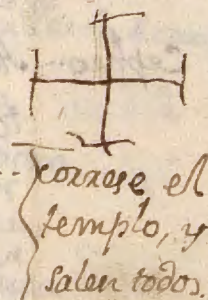 correse el
templo, y
salen todos.